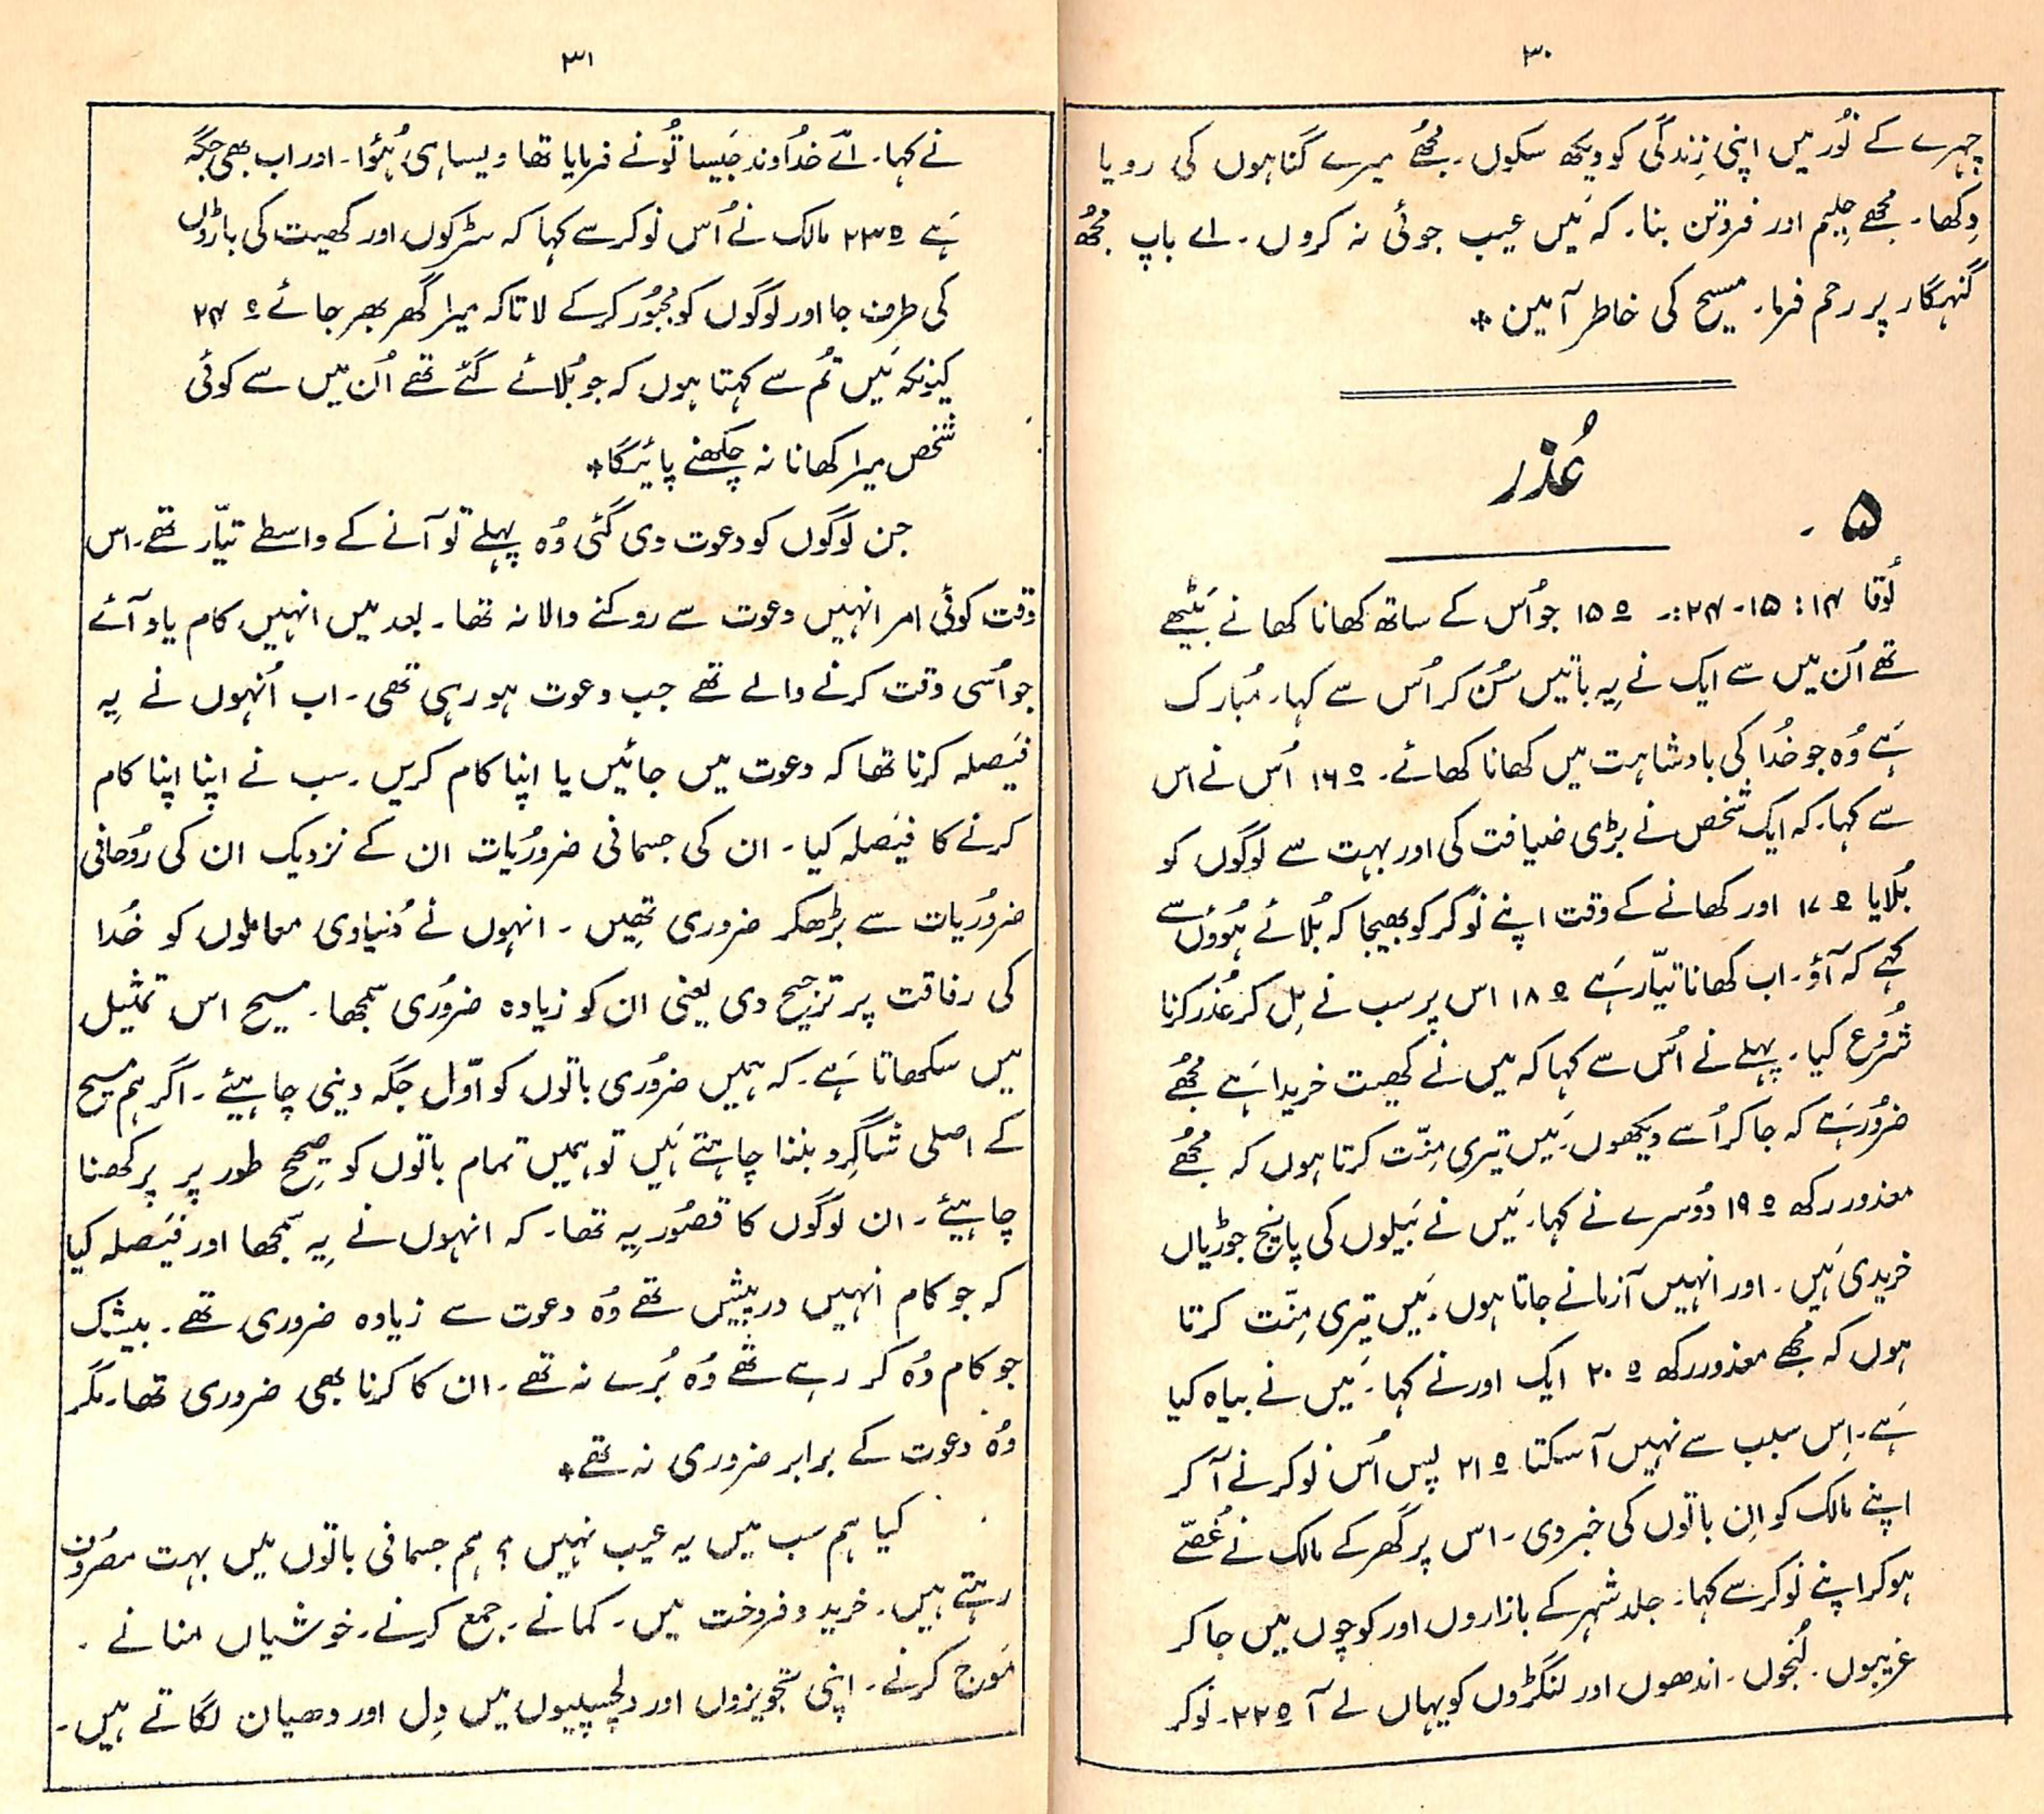 ۳۰
چہرے کے نُور میں اپنی زِندگی کو دیکھ سکوں۔ مجھُے میرے گناہوں کی رویا
دِکھا۔ مجھے حِلیم اور فروتن بنا۔ کہ مَیں عیب جوئی نہ کروں۔ اے باپ مجھُ
گنہگار پر رحم فرما۔ مسیح کی خاطر آمین *
عُذر
۵ ۔
لُوقا ۱۴: ۱۵۔ ۲۴:۔ ۱۵ o جو اُس کے ساتھ کھانا کھانے بَیٹھے
تھے اُن میں سے ایک نے یِہ باتیں سُن کر اُس سے کہا۔ مُبارک
ہَے وُہ جو خُدا کی بادشاہت میں کھانا کھائے۔ o ۱۶ اُس نے اس
سے کہا۔ کہ ایک شخص نے بڑی ضیافت کی اور بہت سے لوگوں کو
بُلایا o ۱۷ اور کھانے کے وقت اپنے نوکر کو بھیجا کہ بُلائے ہُوؤں سے
کہے کہ آؤ۔ اب کھانا تیّار ہَے o ۱۸ اس پر سب نے مِل کر عُذر کرنا
شُروع کیا۔ پہلے نے اُس سے کہا کہ میں نے کھیت خریدا ہَے مجھُے
ضرُور ہَے کہ جا کر اُسے دیکھوں۔ مَیں تیری مِنّت کرتا ہوں کہ مجھُے
معذور رکھ o ۱۹ دُوسرے نے کہا۔ مَیں نے بَیلوں کی پانچ جوڑیاں
خریدی ہَیں۔ اور انہیں آزمانے جاتا ہوں۔ مَیں تیری مِنّت کرتا
ہوں کہ مجھُے معذور رکھ o ۲۰ ایک اور نے کہا۔ مَیں نے بیاہ کیا
ہَے۔ اِس سبب سے نہیں آ سکتا o ۲۱ پس اُس نوکر نے آ کر
اپنے مالک کو اِن باتوں کی خبر دی۔ اس پر گھر کے مالک نے غُصّے
ہو کر اپنے نوکر سے کہا۔ جلد شہر کے بازاروں اور کوچوں میں جا کر
غریبوں۔ لُنجوں۔ اندھوں اور لنگڑوں کو یہاں لے آ o ۲۲۔ نوکر
۳۱
نے کہا۔ اَے خُداوند جَیسا تُو نے فرمایا تھا ویسا ہی ہُؤا۔ اور اب بھی جگہ
ہَے o ۲۳ مالک نے اُس نوکر سے کہا کہ سڑکوں اور کھیت کی باڑوں
کی طرف جا اور لوگوں کو مجبُور کر کے لا تاکہ میرا گھر بھر جائے o ۲۴
کیونکہ مَیں تُم سے کہتا ہوں کہ جو بُلائے گئے تھے اُن میں سے کوئی
شخص میرا کھانا نہ چکھنے پائیگا *
جن لوگوں کو دعوت دی گئی وُہ پہلے تو آنے کے واسطے تیّار تھے۔ اس
وقت کوئی امر انہیں دعوت سے روکنے والا نہ تھا۔ بعد میں انہیں کام یاد آئے
جو اُسی وقت کرنے والے تھے جب دعوت ہو رہی تھی۔ اب اُنہوں نے یِہ
فیَصلہ کرنا تھا کہ دعوت میں جائیں یا اپنا کام کریں۔ سب نے اپنا اپنا کام
کرنے کا فیَصلہ کیا۔ ان کی جسمانی ضرورُیات ان کے نزدیک ان کی رُوحانی
ضرورُیات سے بڑھکر ضروری تھیِں۔ انہوں نے دُنیاوی معاملوں کو خُدا
کی رفاقت پر ترجیح دی یعنی ان کو زیادہ ضرُوری سمجھا۔ مسیح اس تمثیل
میں سکھاتا ہَے۔ کہ ہمیں ضرُوری باتوں کو اوّل جگہ دینی چاہیئے۔ اگر ہم مسیح
کے اصلی شاگرِد بننا چاہتے ہَیں تو ہمیں تمام باتوں کو صحیِح طور پر پرکھنا
چاہیئے۔ ان لوگوں کا قصُور یِہ تھا۔ کہ انہوں نے یِہ سمجھا اور فیَصلہ کیا
کہ جو کام انہیں درپیش تھے وُہ دعوت سے زیادہ ضروری تھے۔ بیشک
جو کام وُہ کر رہے تھے وُہ بُرے نہ تھے۔ ان کا کرنا بھی ضروری تھا۔ مگر
وُہ دعوت کے برابر ضروری نہ تھے *
کیا ہم سب میں یہ عیب نہیں؟ ہم جسمانی باتوں میں بہت مصرُوف
رہتے ہیں۔ خرید و فروخت میں۔ کمانے۔ جمع کرنے۔ خوشیاں منانے۔
مَوج کرنے۔ اپنی تجویزوں اور دلچسپیوں میں دِل اور دھیان لگاتے ہیں۔